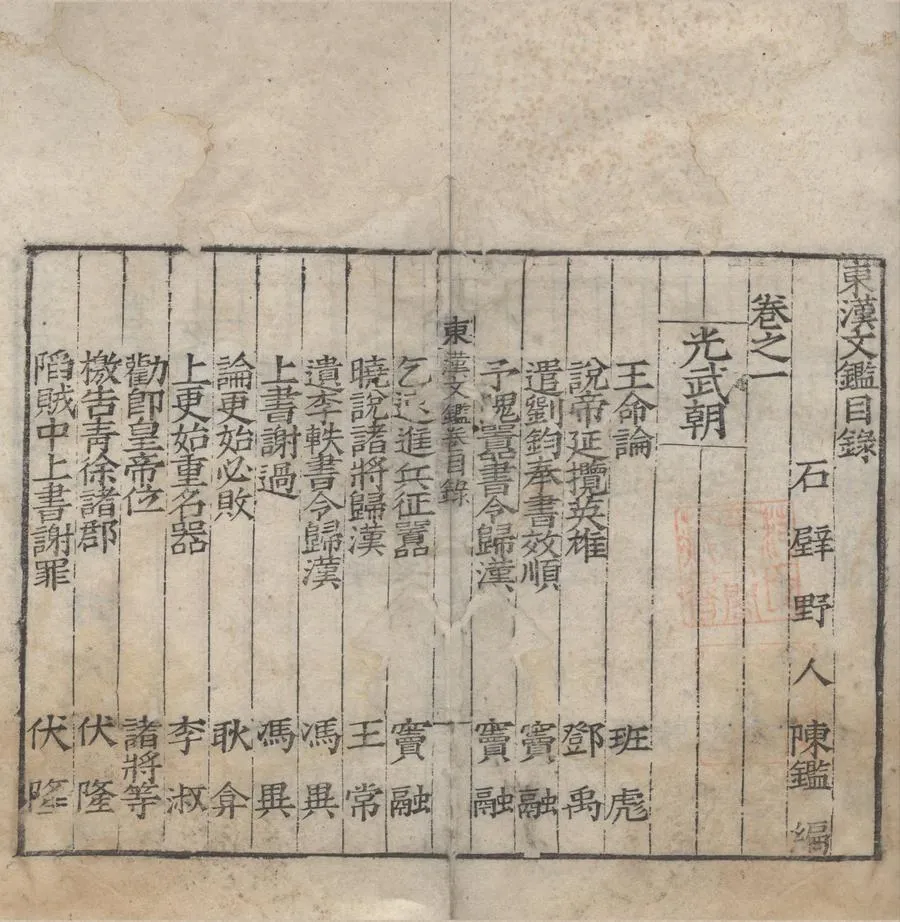 東漢文鑑目錄
石壁野人陳鑑編
卷之一
光武朝
王命論 班彪
說帝延攬英雄 鄧禹
遣劉鈞奉書效順 竇融
予隗囂書令歸漢 竇融
東漢文鑑卷目錄 一
乞遂進兵征囂 竇融
曉說諸將歸漢 王常
遺李軼書令歸漢 馮異
上書謝過 馮異
論更始必敗 耿弇
上更始重名器 李淑
勸即皇帝位 諸將等
檄告青徐諸郡 伏隆
陷賊中上書謝罪 伏隆